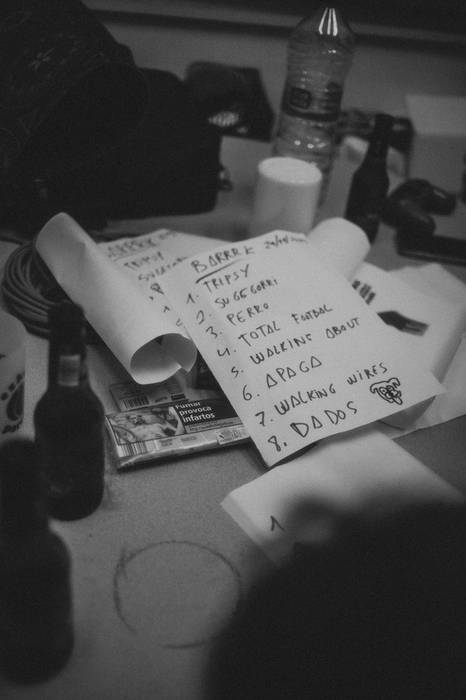 BARRRK
1. TRIPSY
2. SUGEGORRI
3. PERRO
4. TOTAL FOOTBAL
5. WALKING ABOUT
6. APAGA
7. WALKING WIRES
8. DADOS
TRIPSY
Fumar
provoca
infartos
1